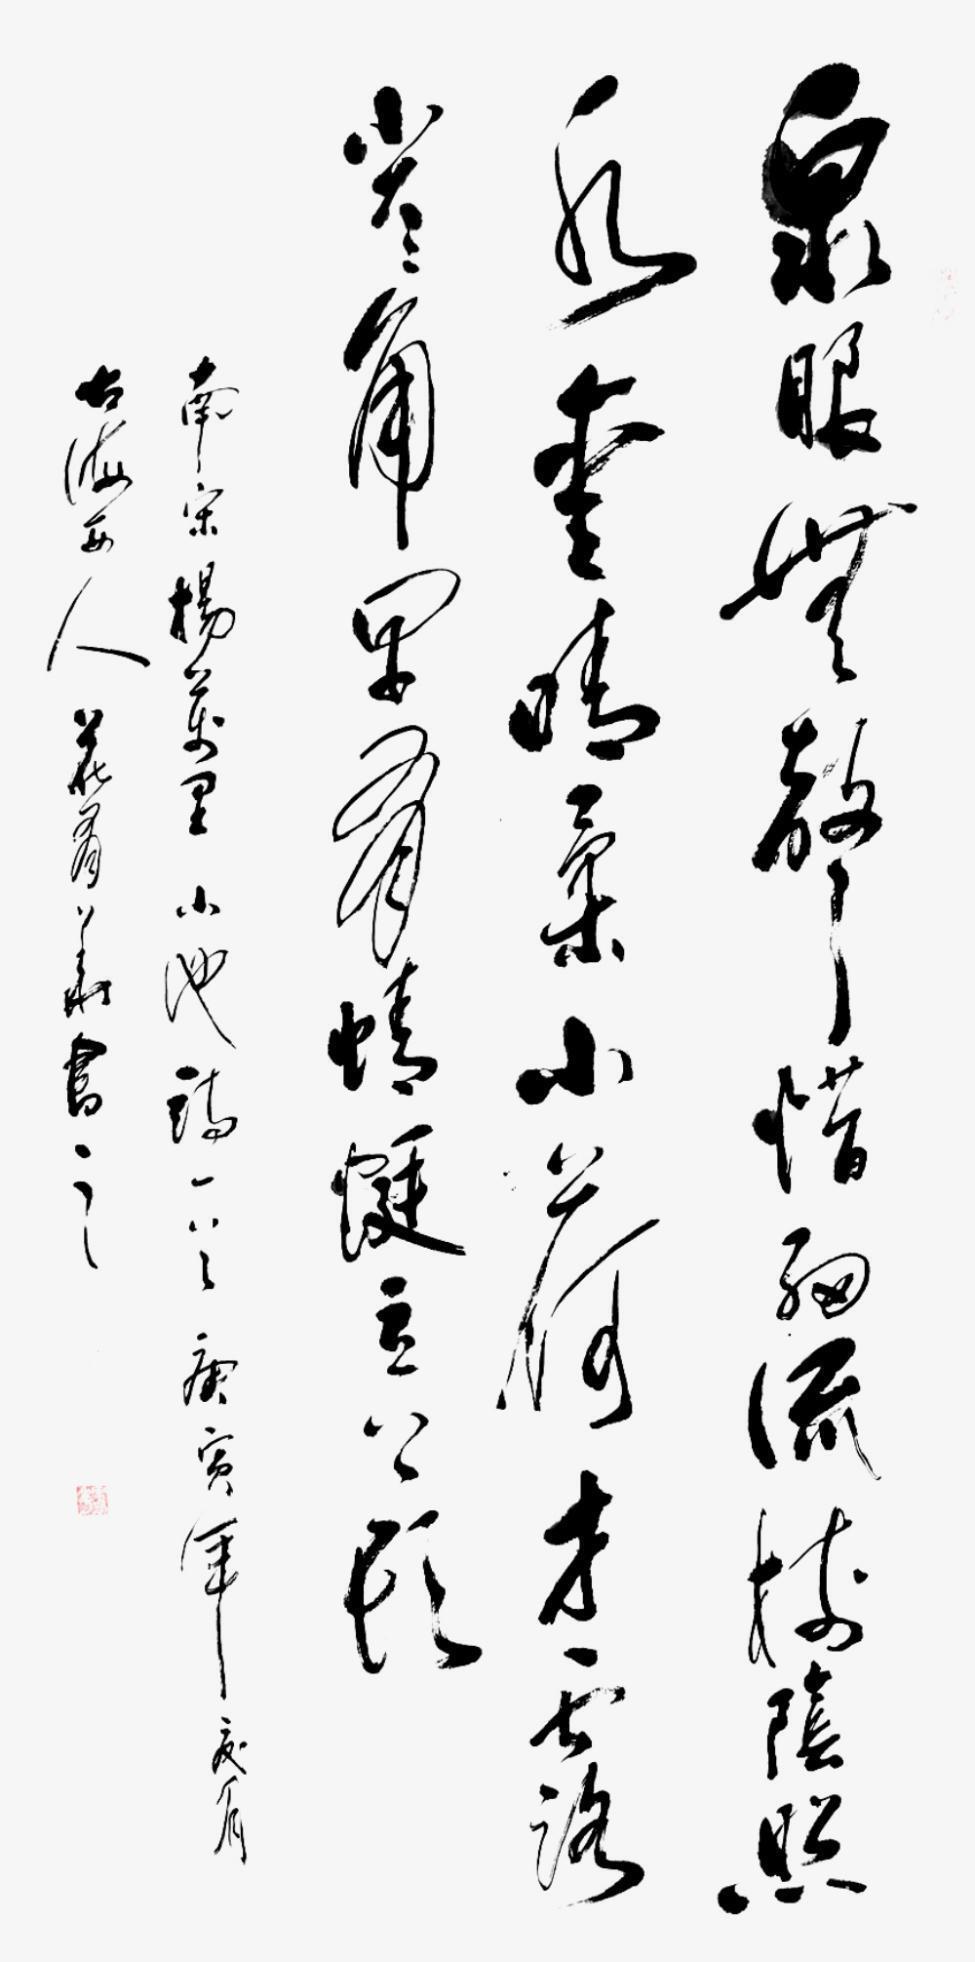 泉眼無聲惜細流樹陰照
水愛晴柔小荷才露
尖々角早有蜻蜓立上頭
南宋楊萬里小池詩一首庚寅年月
古海人書之